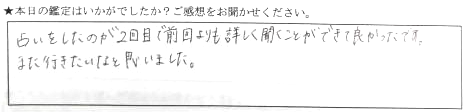 ★本日の鑑定はいかがでしたか？ご感想をお聞かせください。
占いをしたのが2回目で前回よりも詳しく聞くことができて良かったです。
また行きたいなと思いました。